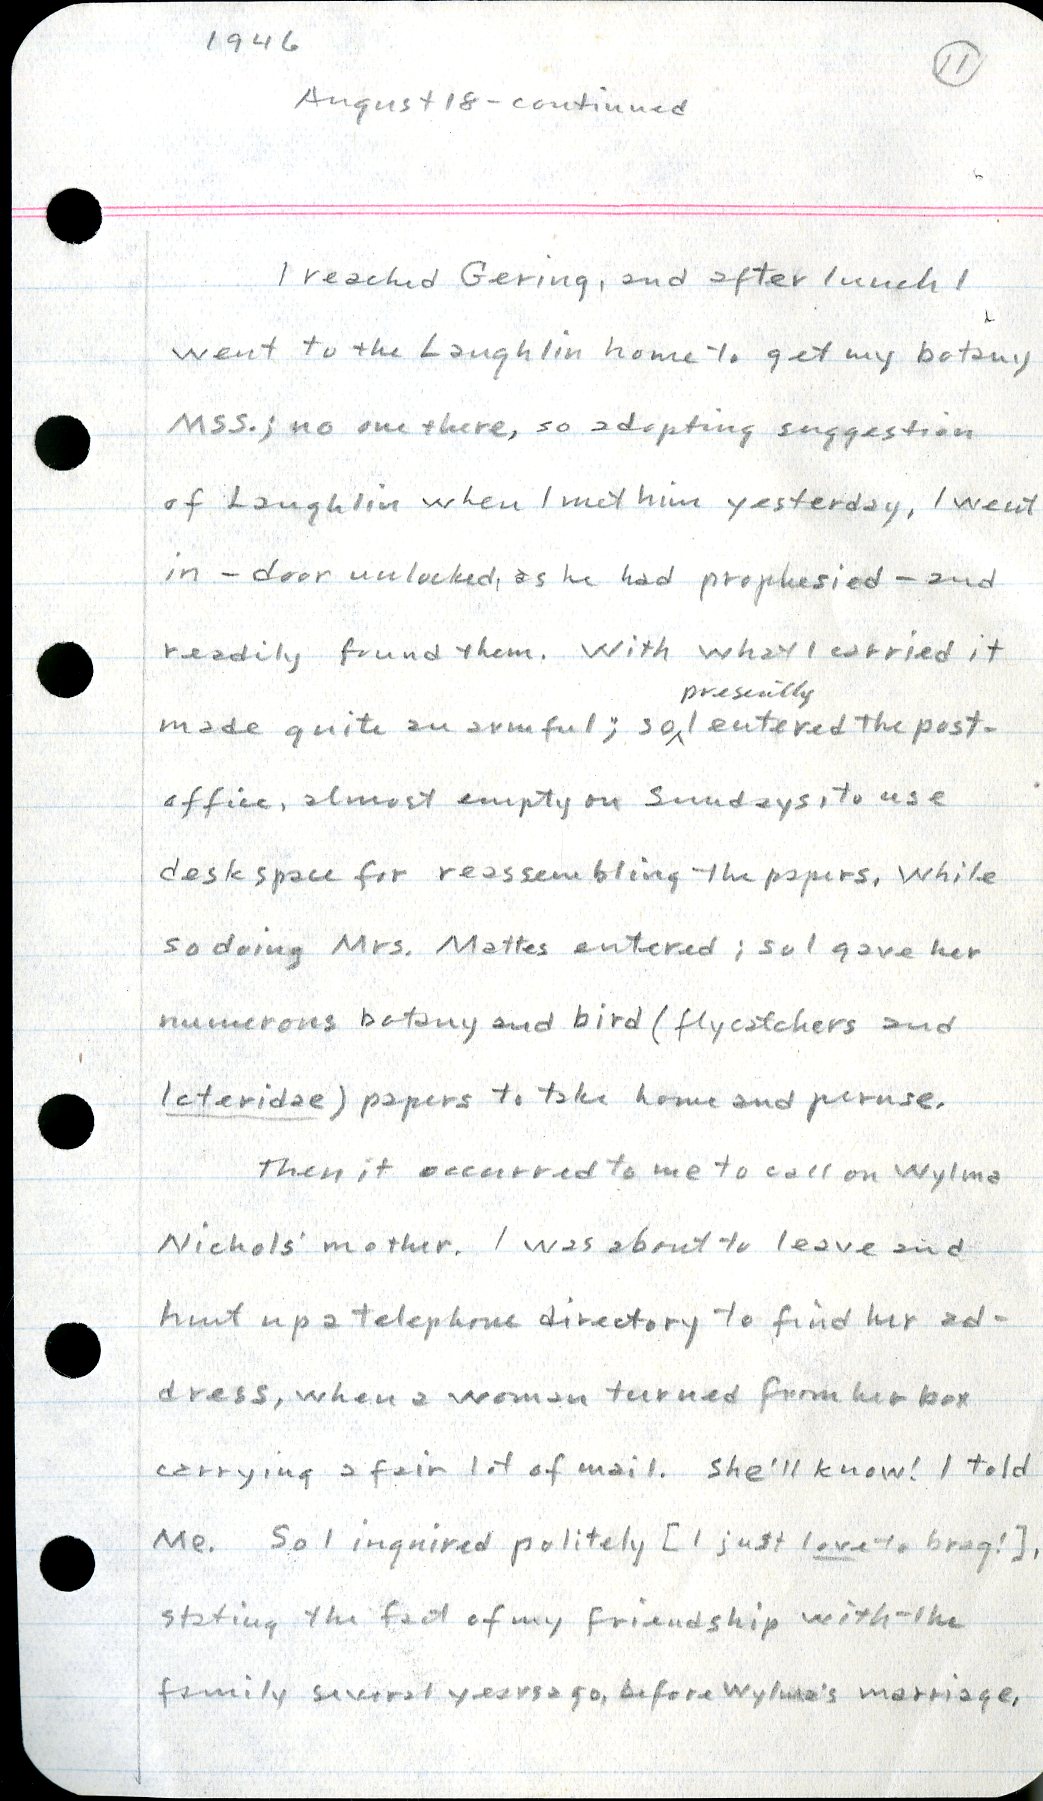 1946
11
August 18 - continued
I reached Gering, and after lunch I
went to the Laughlin home to get my botany
MSS.; no one there, so adopting suggestion
of Laughlin when I met him yesterday, I went
in - door unlocked, as he had prophesied - and
readily found them. With what I carried it
presently
made quite an armful; so ^ I entered the post-
office, almost empty on Sundays, to use
desk space for reassembling the papers. While
so doing Mrs. Mattes entered; so I gave her
numerous botany and bird (flycatchers and
Icteridae) papers to take home and peruse.
Then it occurred to me to call on Wylma
Nichols' mother. I was about to leave and
hunt up a telephone directory to find her ad-
dress, when a woman turned from her box
carrying a fair lot of mail. She'll know! I told
Me. So I inquired politely [I just love to brag!],
stating the fact of my friendship with the
family several years ago, before Wylma's marriage,